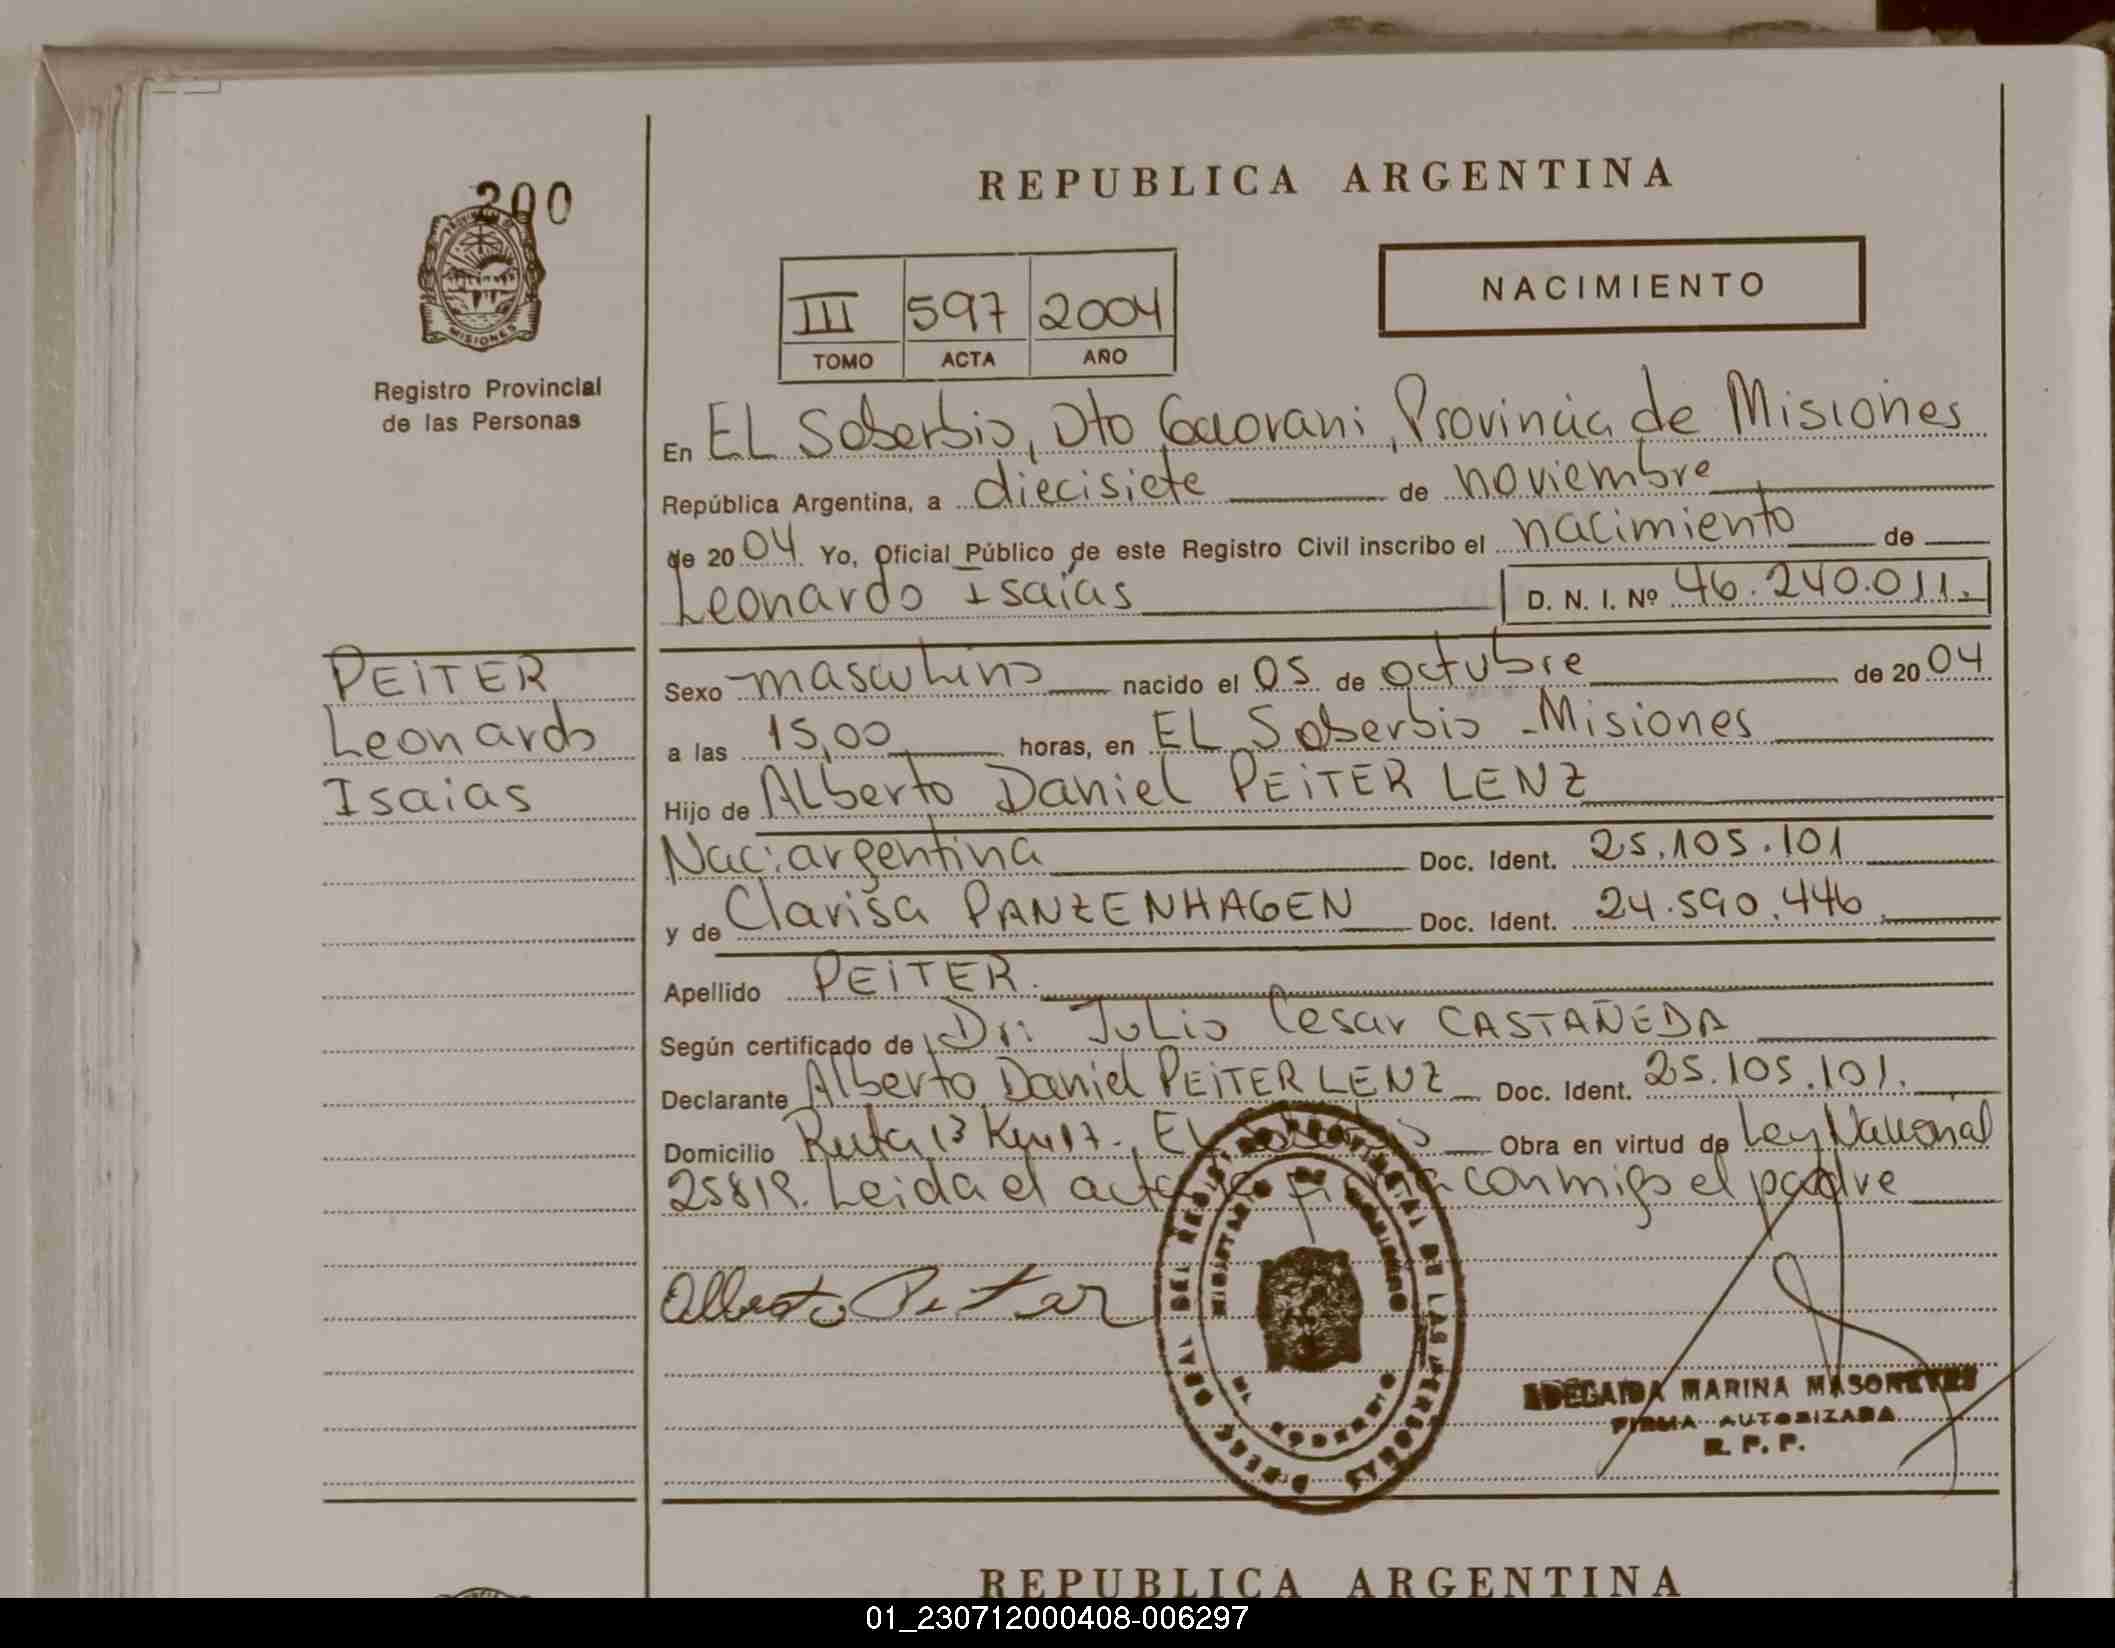 200
PROVINCIA DE
MISIONES
Registro Provincial
de las Personas
REPUBLICA ARGENTINA
NACIMIENTO
III 597 2004
TOMO ACTA AÑO
En EL Soberbio, Dto Guaraní, Provincia de Misiones
República Argentina, a diecisiete de noviembre
de 2004 Yo, Oficial Público de este Registro Civil inscribo el nacimiento de
Leonardo Isaías D. N. I. Nº 46.240.011.
PEITER
Leonardo
Isaias
Sexo masculino nacido el 05 de octubre de 2004
a las 15,00 horas, en EL Soberbio - Misiones
Hijo de Alberto Daniel PEITER LENZ
Nac: argentina Doc. Ident. 25.105.101
y de Clarisa PANZENHAGEN Doc. Ident. 24.590.446.
Apellido PEITER.
Según certificado de Dr: Julio Cesar CASTAÑEDA
Declarante Alberto Daniel PEITER LENZ Doc. Ident. 25.105.101.
Domicilio Ruta 13 Km 17. El Soberbio Obra en virtud de Ley Nacional
25819. Leida el acta la firma conmigo el padre
Alberto Peiter
MARINA
FIRMA AUTORIZADA
R. P. P.
REPUBLICA ARGENTINA
01_230712000408-006297